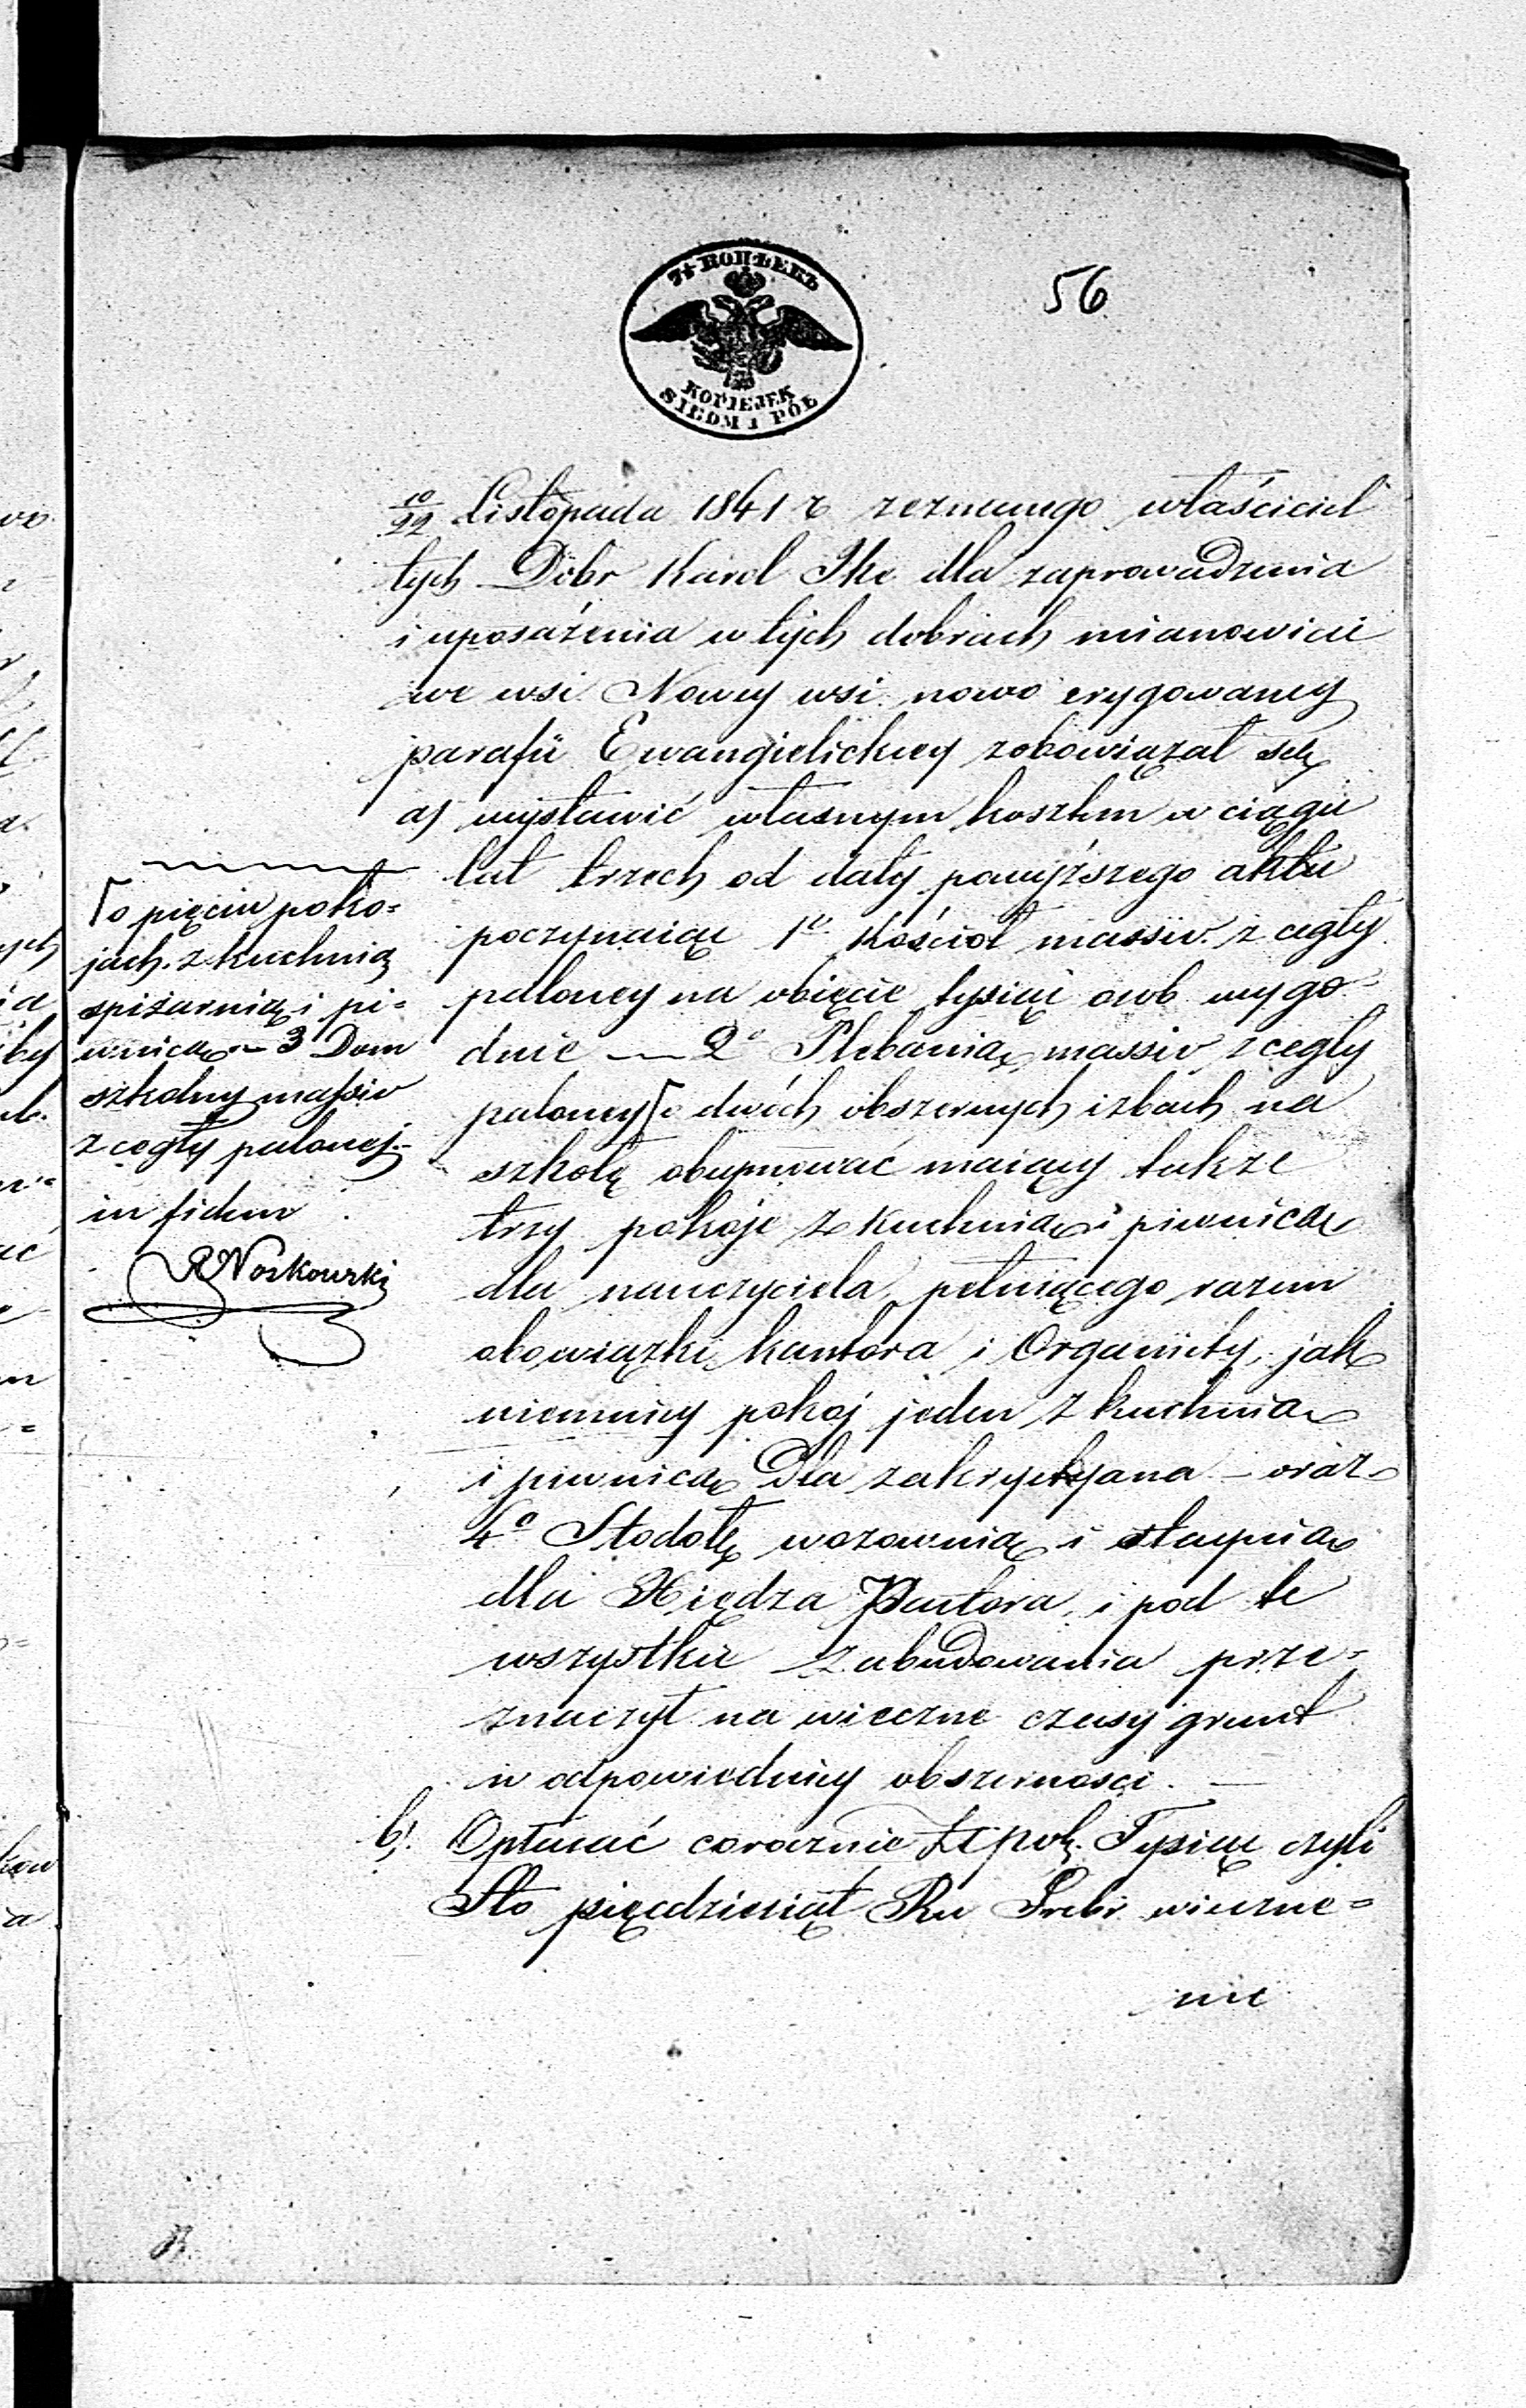 7½ КОПѢЕКЪ
KOPIEJEK
SIEDM I PÓŁ
56
10/22 Listopada 1841 r zeznanego właściciel
tych Dóbr Karol Ike dla zaprowadzenia
i uposażenia w tych dobrach mianowicie
we wsi Nowey wsi nowo erygowaney
parafii Ewangielickiey zobowiązał się
a) wystawić własnym kosztem w ciągu
lat trzech od daty powyższego aktu
poczynaiąc 1o Kościoł massiv z cegły
paloney na obięcie tysiąc osob wygo-
dnie — 2o Plebanią massiv z cegły
paloney ⌈ o dwóch obszernych izbach na
szkołę obeymować maiący także
trzy pokoje z kuchnią i piwnicą
dla nauczyciela pełniącego razem
obowiązki kantora i Organisty, jak
niemniey pokoj jeden z kuchnią
i piwnicą dla zakrystyana – oraz
4o Stodołę wozownią i staynią
dla Xiędza Pastora i pod te
wszystkie zabudowania prze-
znaczył na wieczne czasy grunt
w odpowiedniey obszerności. —
b). Opłacać corocznie Złpol. Tysiąc czyli
Sto pięćdziesiąt Ru Srebr. wieczne=
nie
⌈ o pięciu poko=
jach z kuchnią
spiżarnią i pi=
wnicą — 3 Dom
szkolny massiv
z cegły palonej.
in fidem
R Noskowski